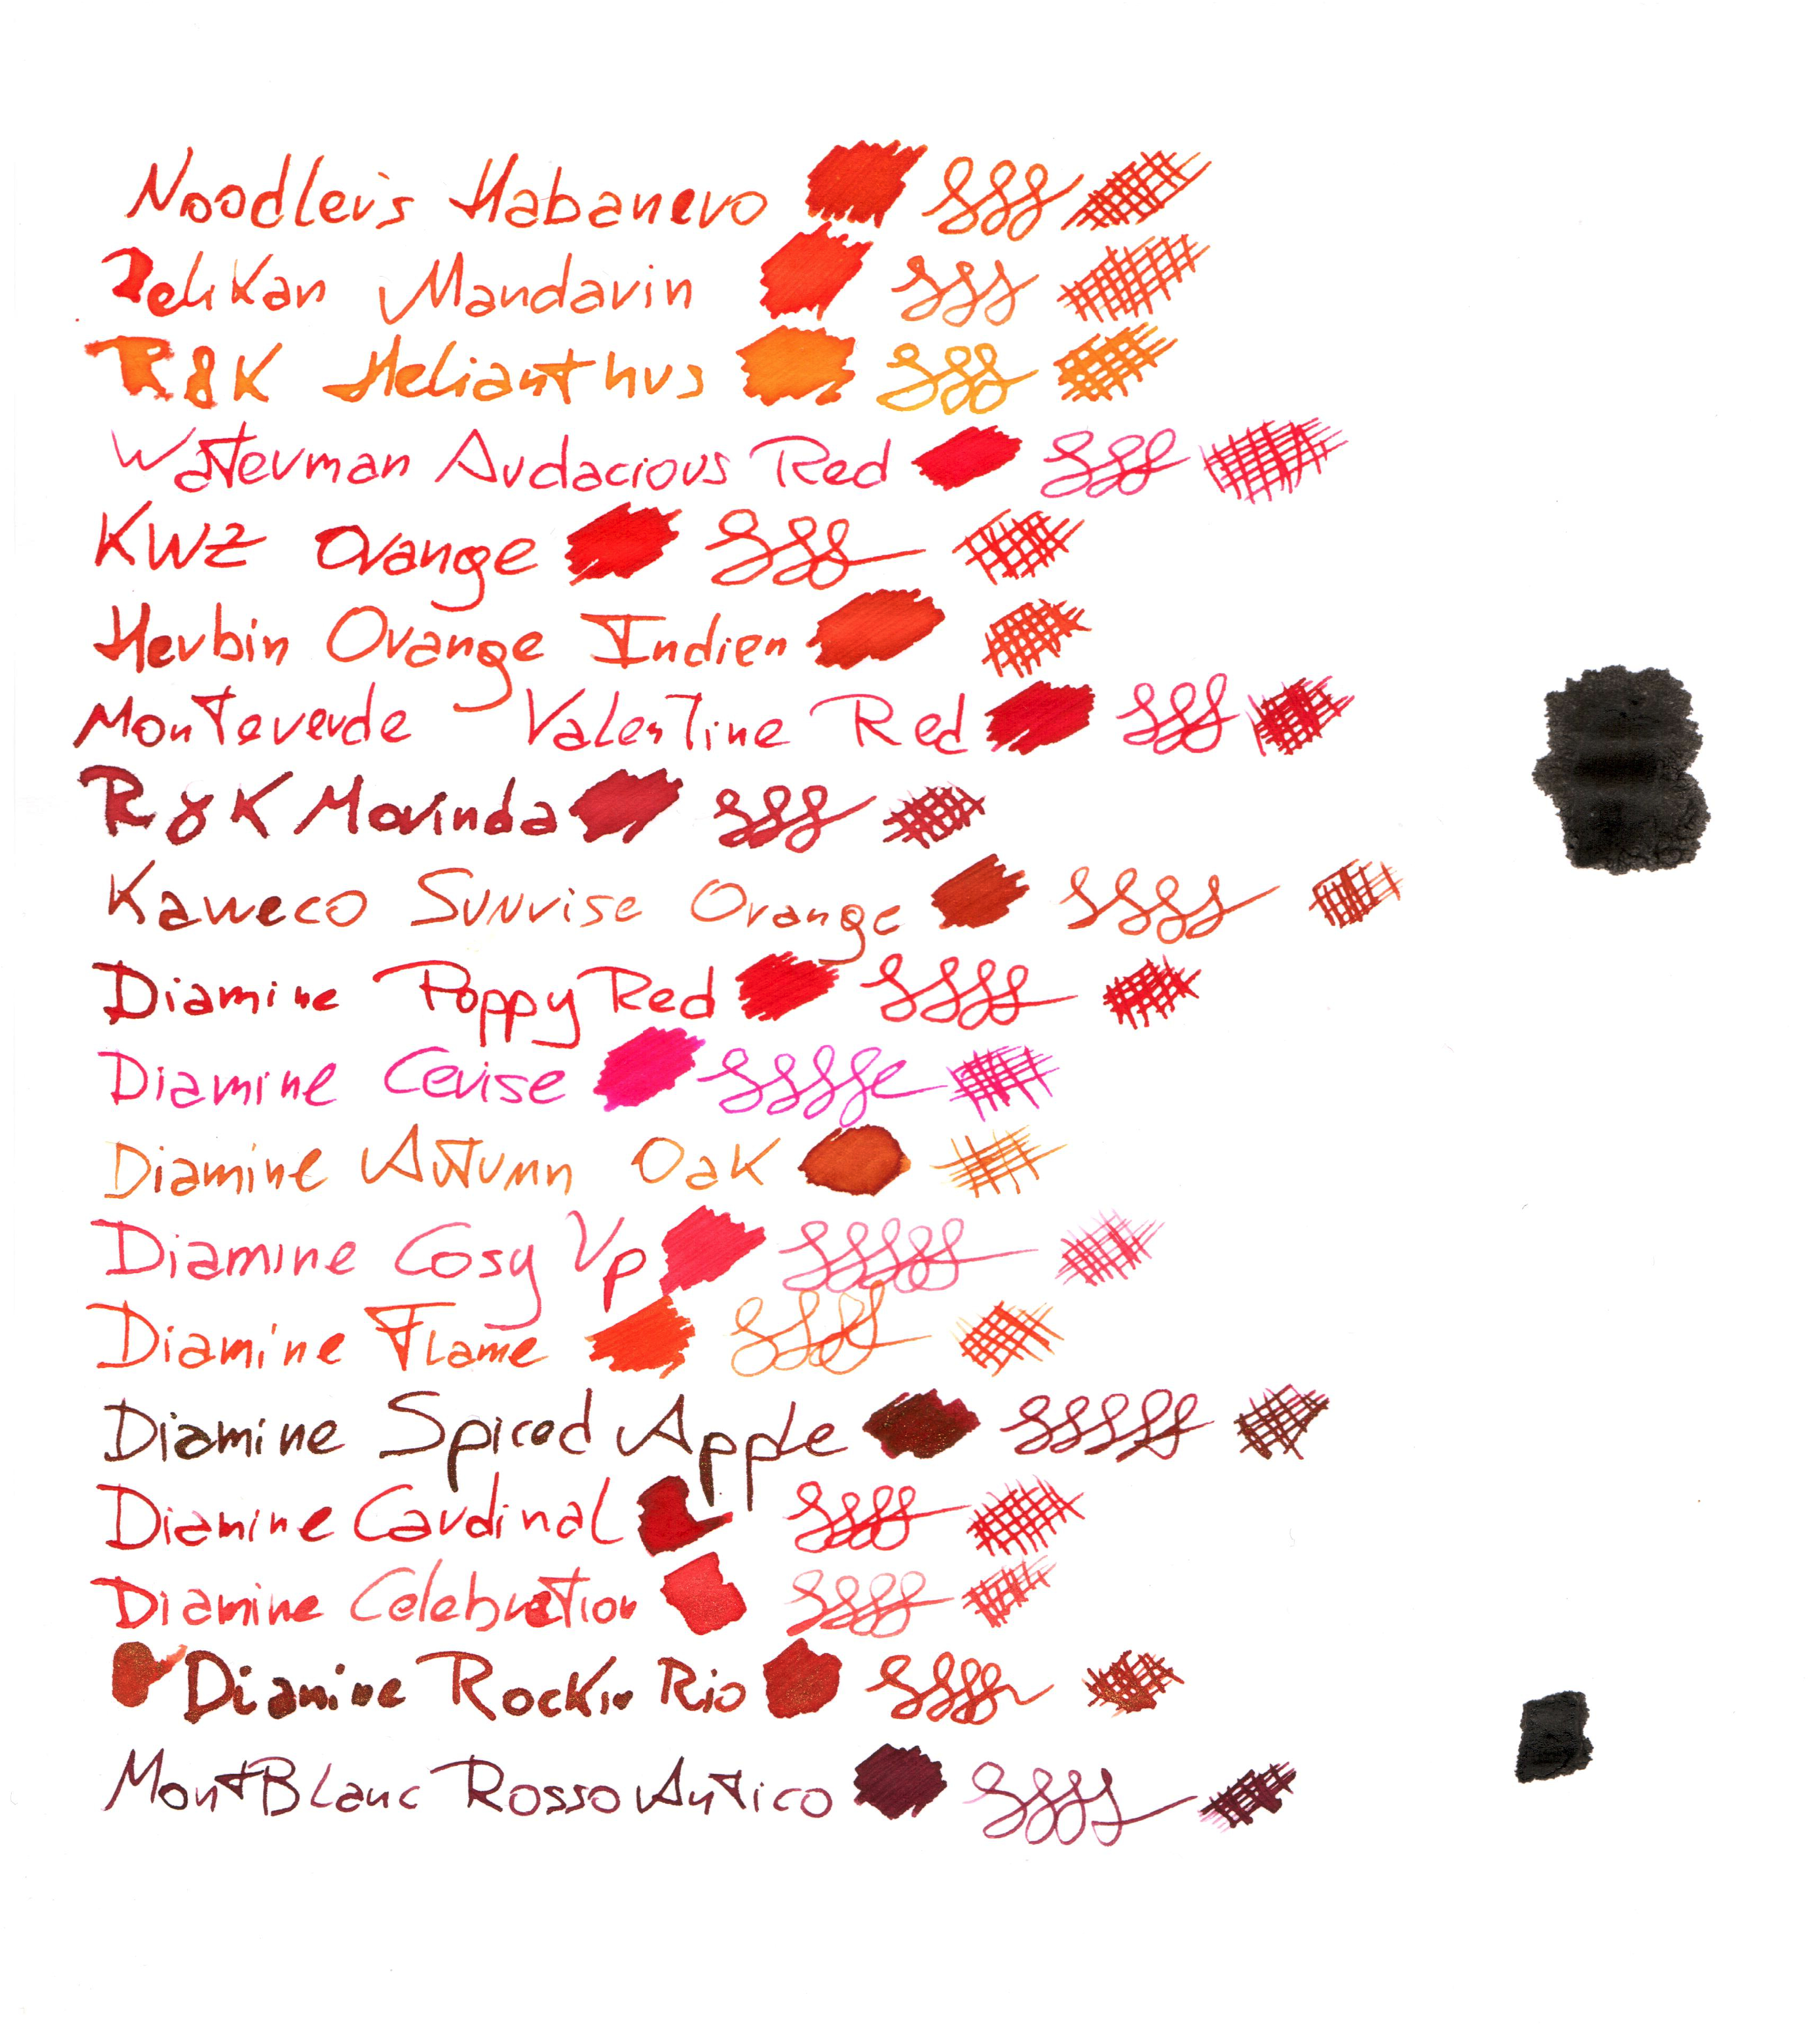 Noodler's Habanero
Pelikan Mandarin
R&K Helianthus
Waterman Audacious Red
KWZ Orange
Herbin Orange Indien
Monteverde Valentine Red
R&K Morinda
Kaweco Sunrise Orange
Diamine Poppy Red
Diamine Cerise
Diamine Autumn Oak
Diamine Cosy Up
Diamine Flame
Diamine Spiced Apple
Diamine Cardinal
Diamine Celebration
Diamine Rockin Rio
MontBlanc Rosso Antico